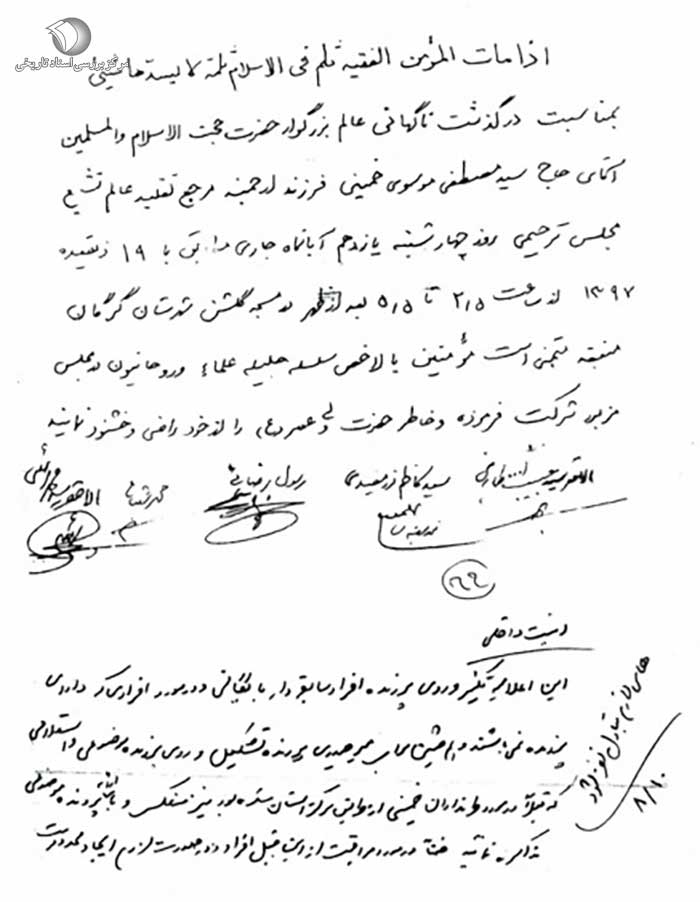 مرکز بررسی اسناد تاریخی
اذا مات المؤمن الفقیه ثلم فی الاسلام ثلمة لا یسدها شیئی
بمناسبت درگذشت ناگهانی عالم بزرگوار حضرت حجت الاسلام والمسلمین
آقای حاج سید مصطفی موسوی خمینی فرزند ارجمند مرجع تقلید عالم تشیع
مجلس ترحیمی روز چهارشنبه یازدهم آبانماه جاری مطابق با ۱۹ ذیقعده
۱۳۹۷ از ساعت ۲٫۵ تا ۵٫۵ بعد از ظهر در مسجد گلشن شهرستان گرگان
منعقد متمنی است مؤمنین بالاخص سلسله جلیله علماء و روحانیون در مجلس
مزبور شرکت فرموده و خاطر حضرت ولی عصر (ع) را از خود راضی و خشنود نمایند
الاحقر سید حبیب الله سید کاظم رسول رضائی الاحقر سید
امنیت داخلی
این اعلامیه تکثیر و روی پرونده افراد سابقه‌دار بایگانی و در مورد افرادی که دارای
پرونده نمی‌باشند پرونده تشکیل و روی پرونده
که قبلا در مورد طرفداران خمینی از مرکز استان شده بود نیز منعکس و پرونده
مذاکره نمائید ضمنا در مورد مراقبت از این قبیل افراد و در صورت لزوم ایجاد محدودیت
های لازم تبادل نظر شود
۸/۱۰